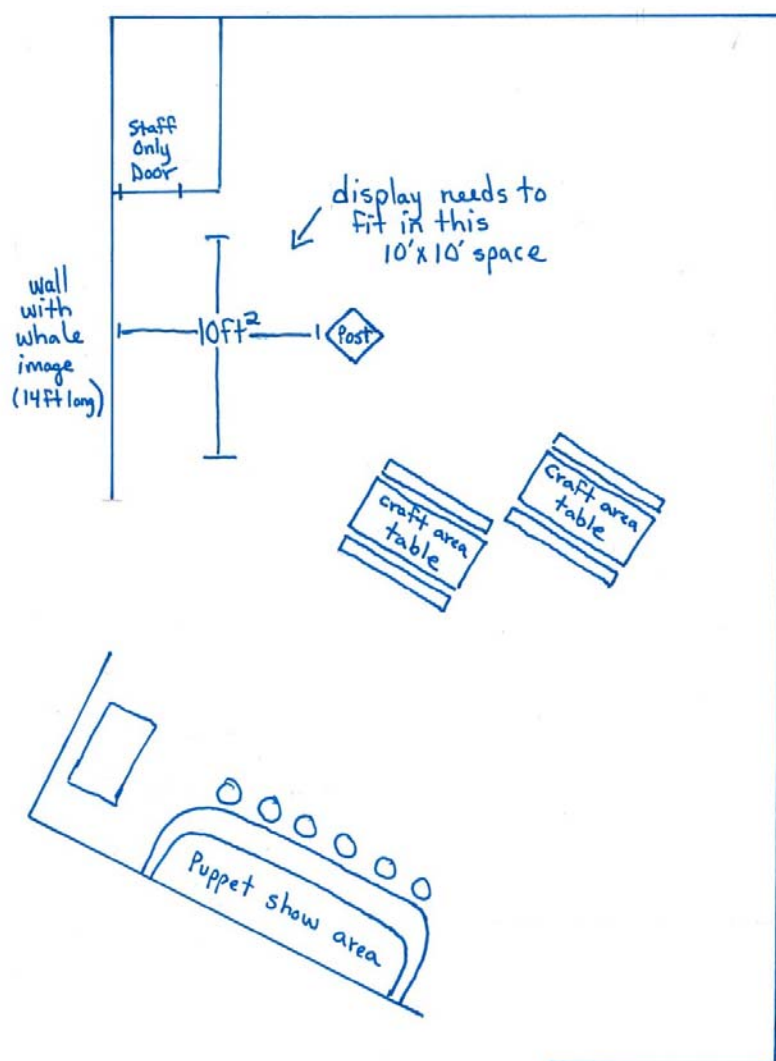 Staff
Only
Door
display needs to
fit in this
10'x10' space
wall
with
whale
image
(14ft long)
10ft²
Post
craft area
table
craft area
table
Puppet show area